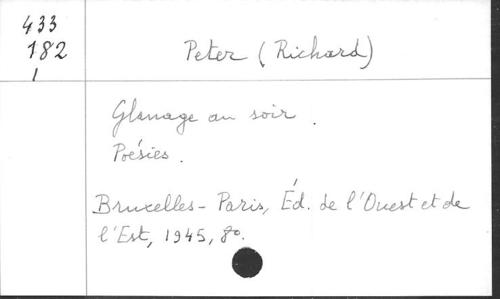 433
182
1
Peter (Richard)
Glanage au soir.
Poésies.
Bruxelles - Paris, Éd. de l'Ouest et de
l'Est, 1945, 8o.